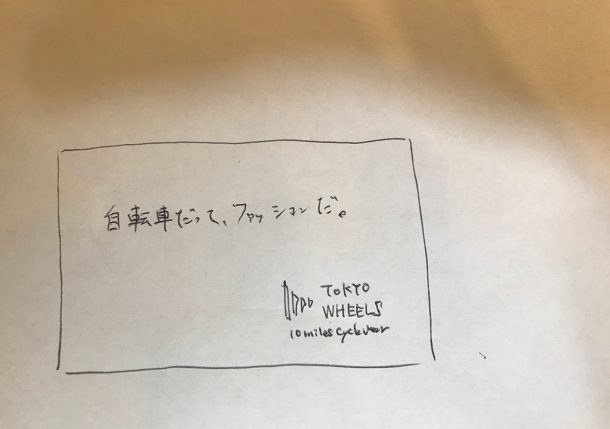 自転車だって、ファッションだ。
TOKYO
WHEELS
10miles Cyclewear